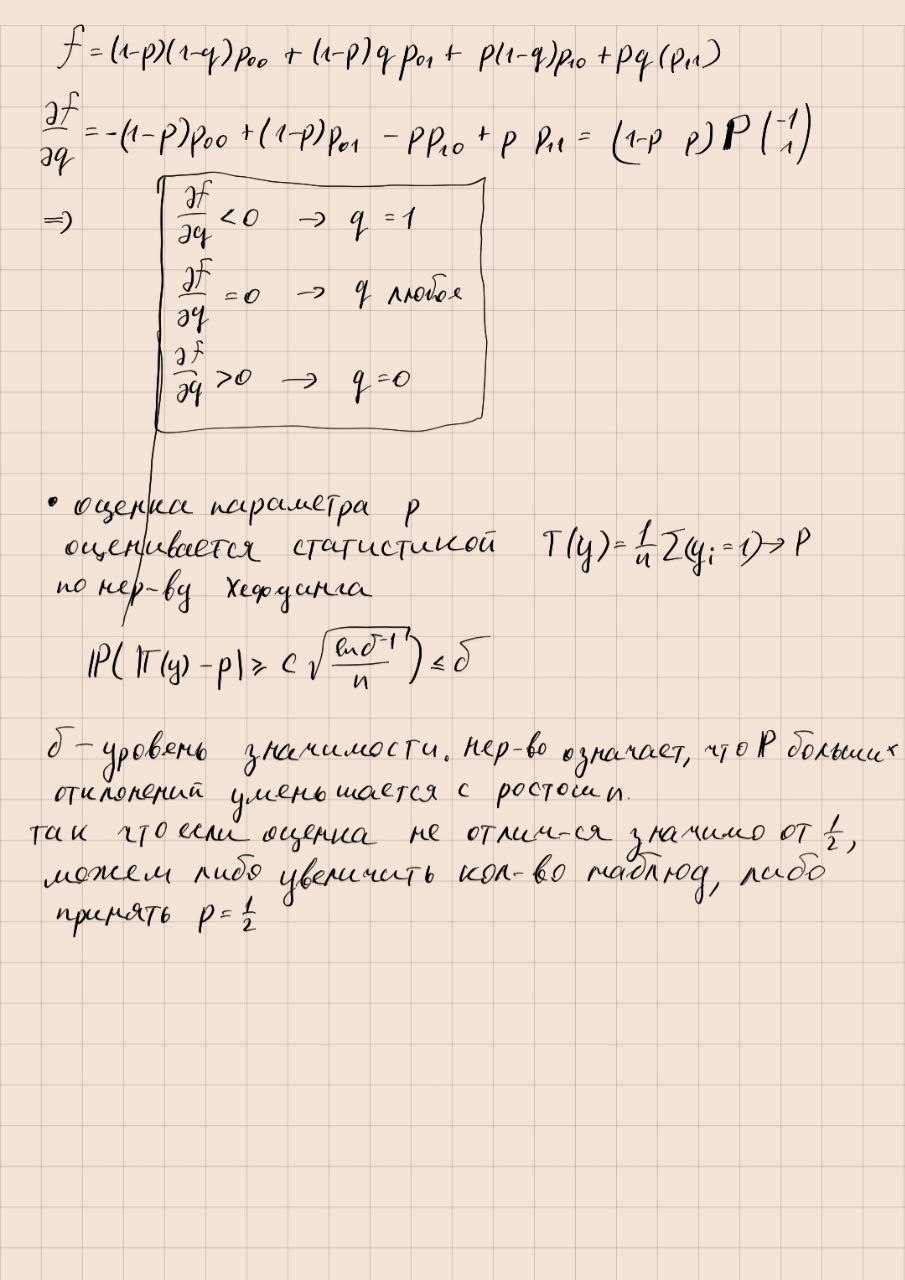 f = (1-p)(1-q)p₀₀ + (1-p)q p₀₁ + p(1-q)p₁₀ + pq(p₁₁)
∂f/∂q = -(1-p)p₀₀ + (1-p)p₀₁ - pp₁₀ + p p₁₁ = (1-p p) P (-1 1)
⇒ ∂f/∂q < 0 → q = 1
∂f/∂q = 0 → q любое
∂f/∂q > 0 → q = 0
• оценка параметра p
оценивается статистикой T(y) = 1/n Σ(yᵢ = 1) → P
по нер-ву Хефдинга
ℙ( |T(y) - p| ≥ c √(ln δ⁻¹/n) ) ≤ δ
δ - уровень значимости. нер-во означает, что ℙ больших
отклонений уменьшается с ростом n.
так что если оценка не отлич-ся значимо от 1/2,
можем либо увеличить кол-во наблюд, либо
принять p = 1/2